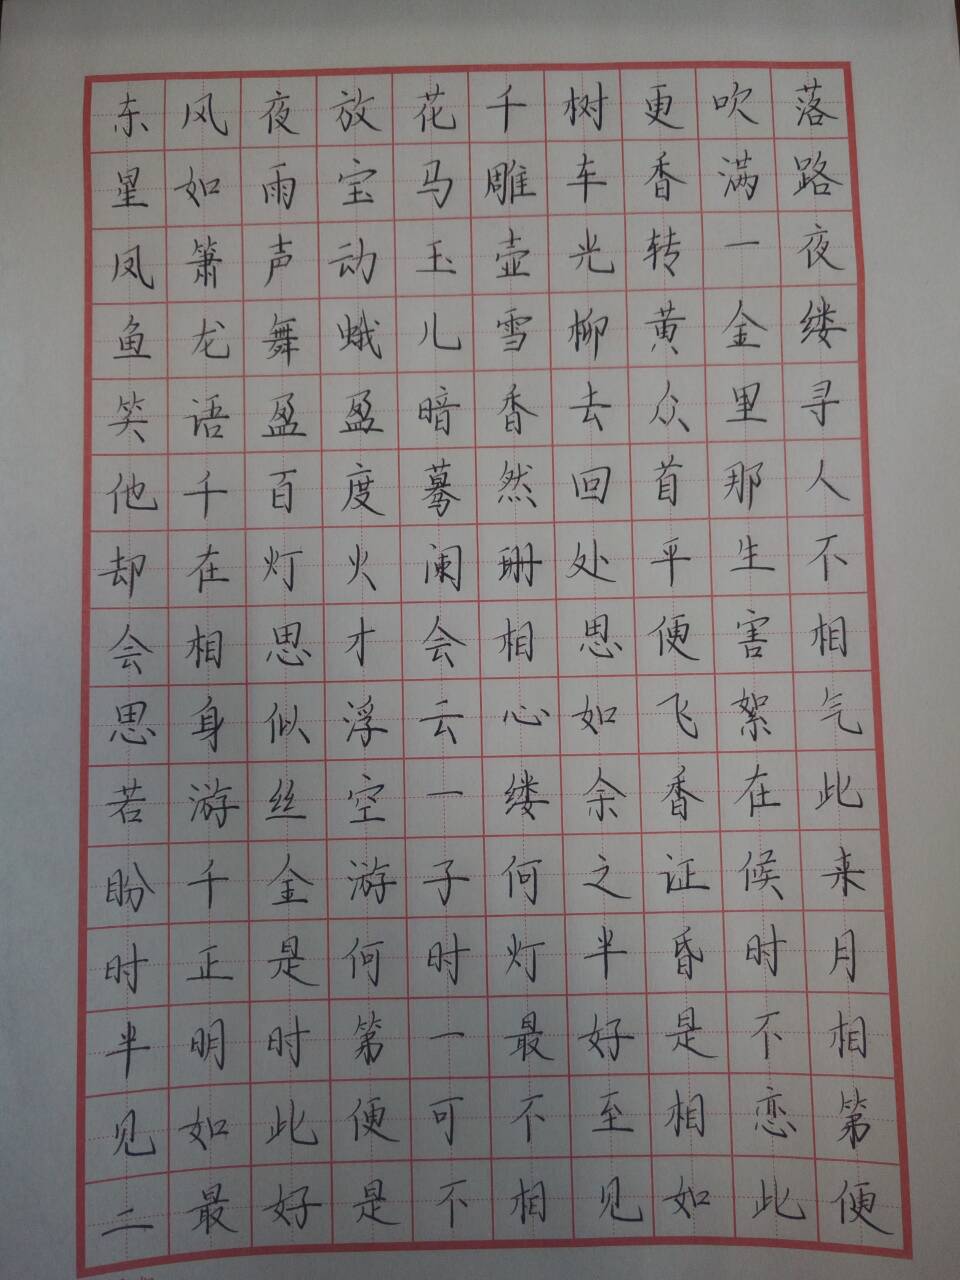 东风夜放花千树更吹落
星如雨宝马雕车香满路
凤箫声动玉壶光转一夜
鱼龙舞蛾儿雪柳黄金缕
笑语盈盈暗香去众里寻
他千百度蓦然回首那人
却在灯火阑珊处平生不
会相思才会相思便害相
思身似浮云心如飞絮气
若游丝空一缕余香在此
盼千金游子何之证候来
时正是何时灯半昏时月
半明时第一最好是不相
见如此便可不至相恋第
二最好是不相见如此便